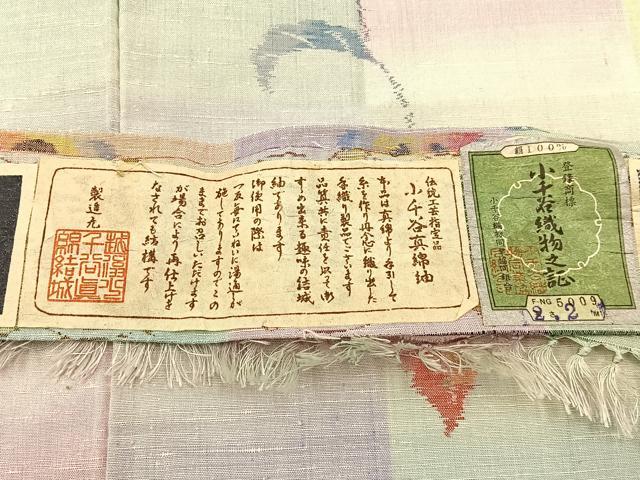 伝統工芸指定品
小千谷真綿紬
本品は真綿より手引して
糸を作り丹念に織り出した
手織り製品でございます
品質共に責任を以って御
すすめ出来る趣味の結城
紬であります
御使用の際は
一反每にていねいに湯通しが
施してありますのでこの
ままでお召しいただけます
が場合により再仕上げを
なされても結構です
製造元
越後小
千谷真
綿結城
絹100%
登録商標
小千谷織物之証
小千谷織物同業協同組合
F-NG 5009
2.2